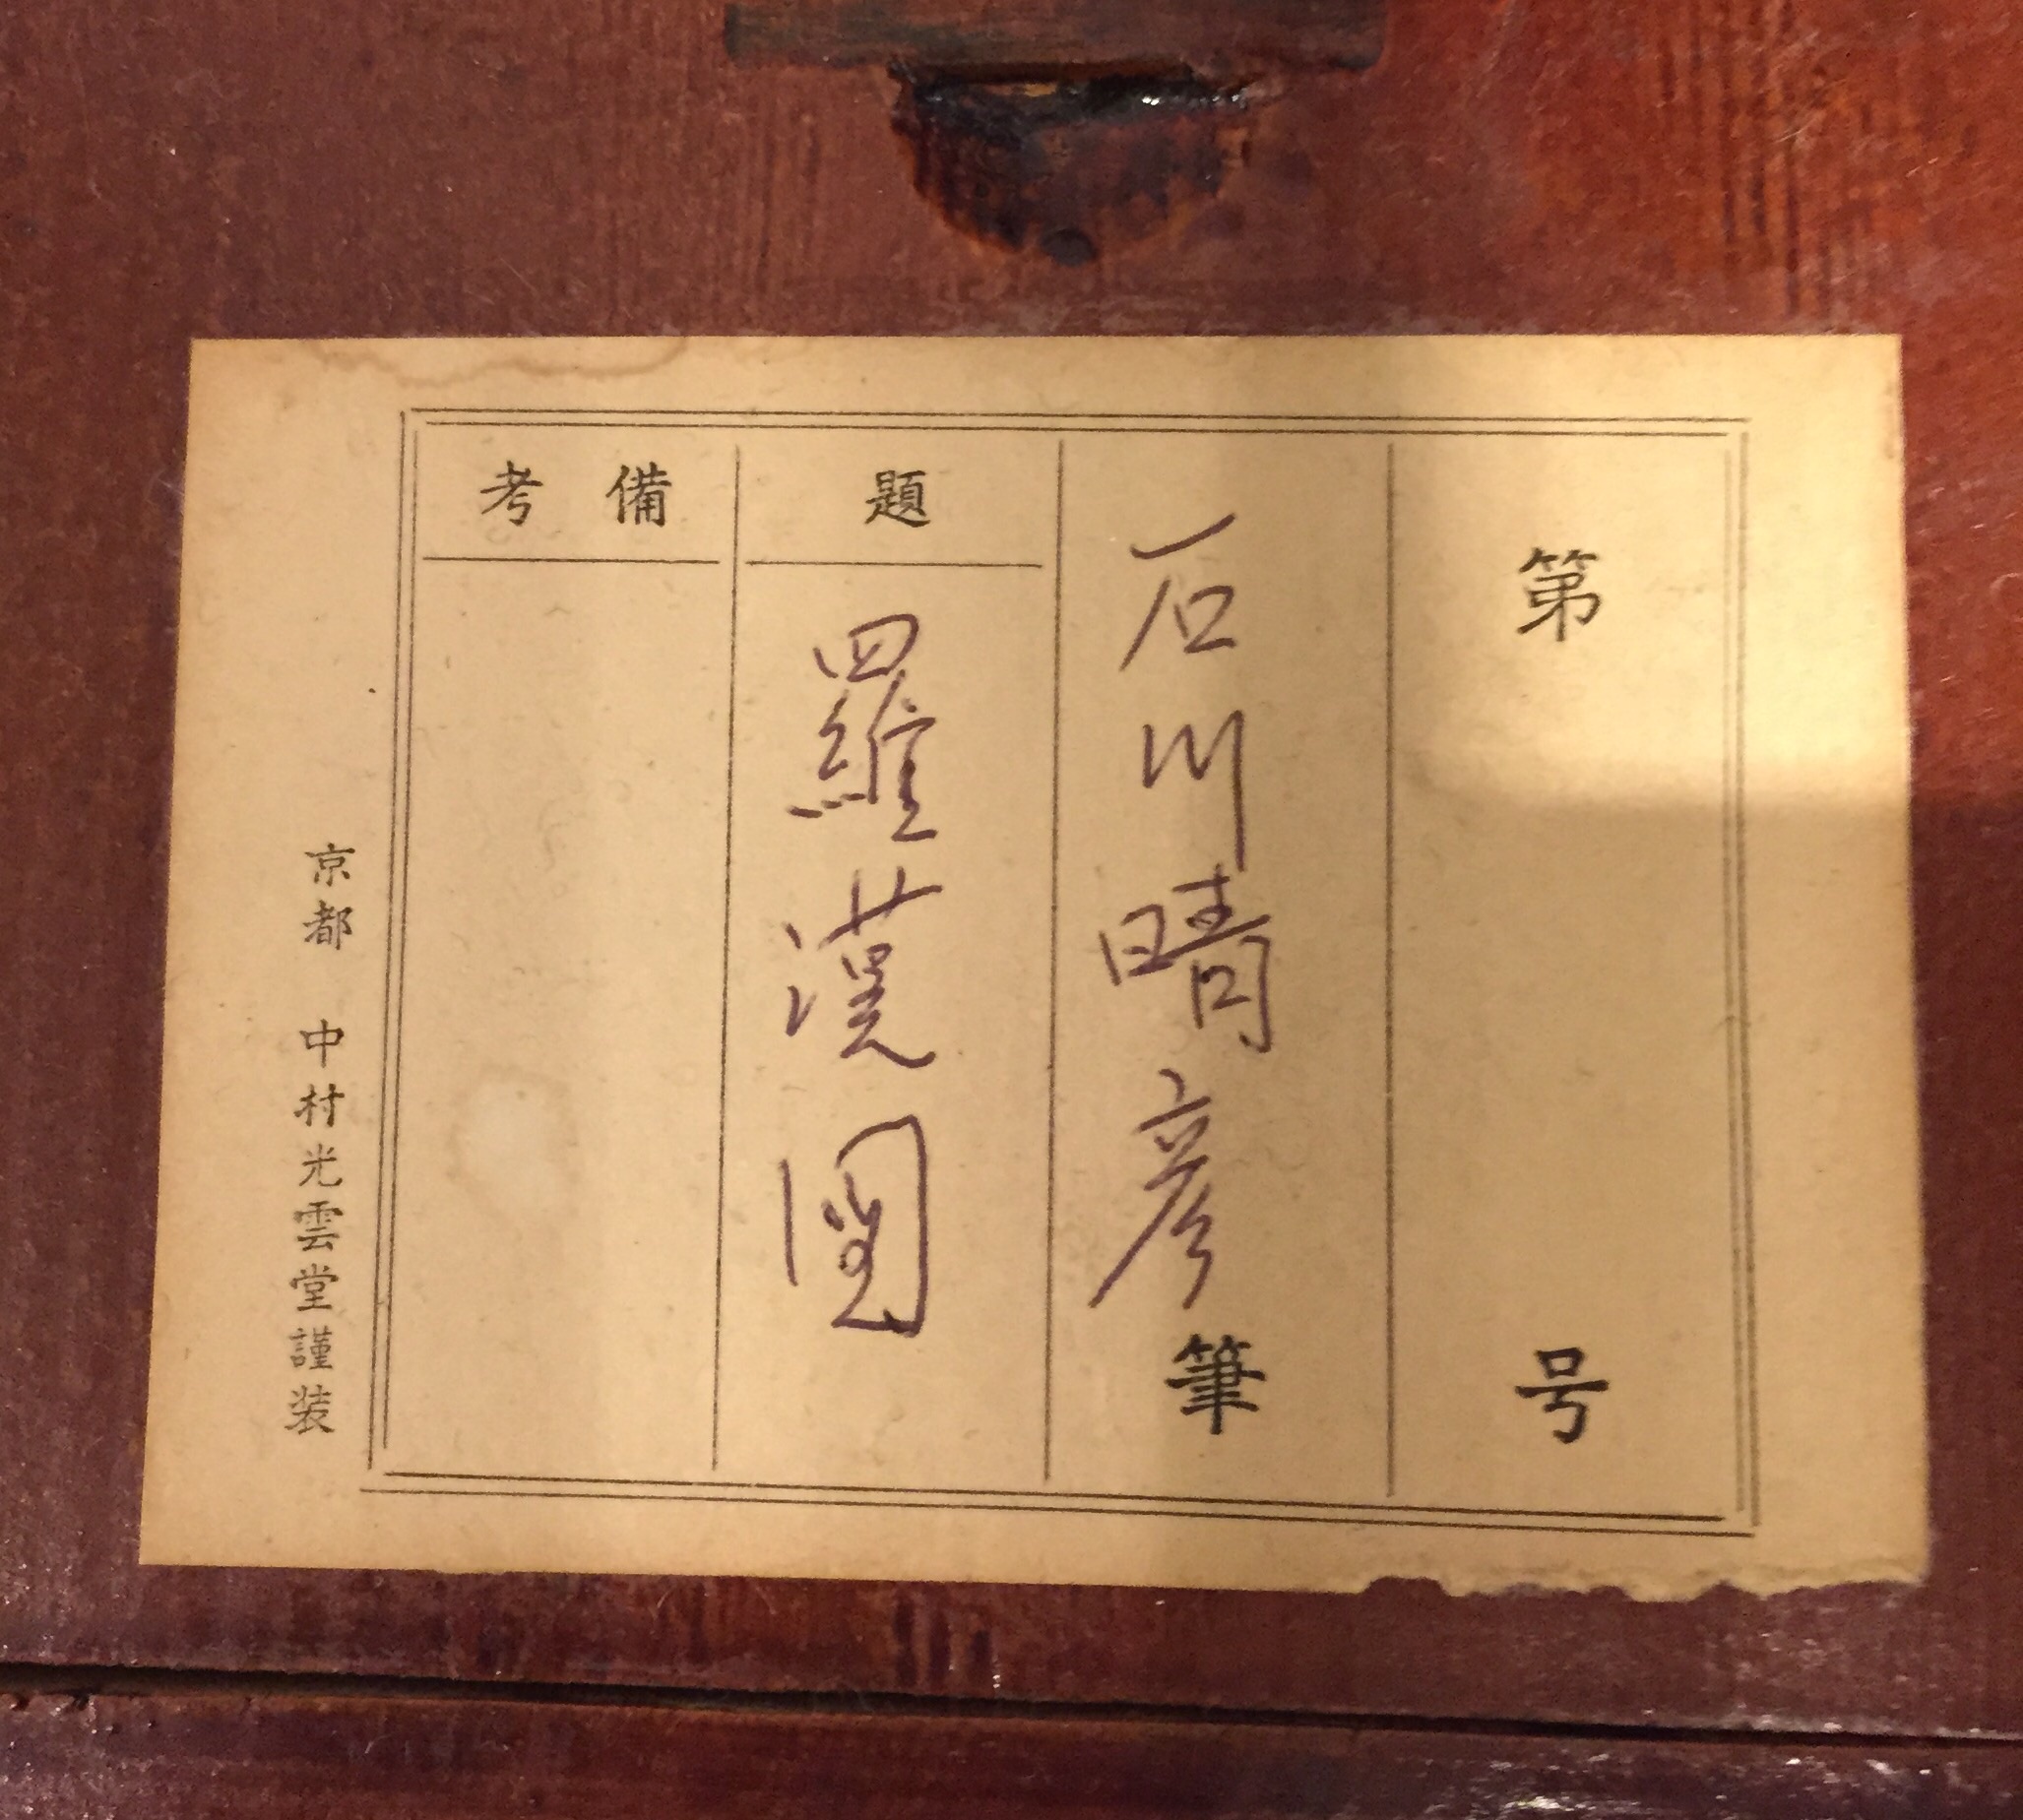 第 号
石川晴彦筆
題
羅漢図
備考
京都 中村光雲堂謹装